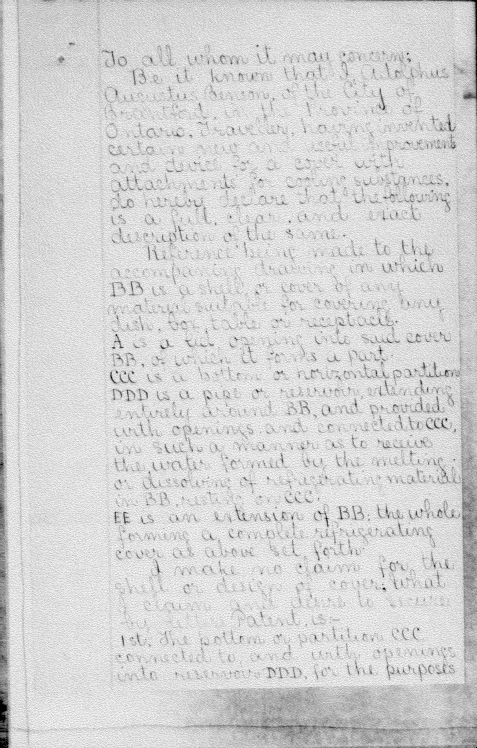 To all whom it may concern:
Be it known that I, Adolphus
Augustus Benson, of the City of
Brantford, in the Province of
Ontario, Traveller, having invented
certain new and useful improvement
and device for a cover with
attachments for cooling substances,
do hereby declare that the following
is a full, clear, and exact
description of the same.
Reference being made to the
accompaning drawing in which
BB is a shell or cover of any
material suitable for covering any
dish, box, table or receptacle.
A is a lid opening into said cover
BB, of which it forms a part.
CCC is a bottom or horizontal partition
DDD is a pipe or reservoir, extending
entirely around BB, and provided
with openings and connected to CCC,
in such a manner as to receive
the water formed by the melting
or dissolving of refrigerating material
in BB, resting on CCC.
EE is an extension of BB; the whole
forming a complete refrigerating
cover as above set forth
I make no claim for the
shell or design of cover; what
I claim and desire to secure
by Letters Patent, is:-
1st. The bottom or partition CCC
connected to, and with openings
into reservoir DDD, for the purposes